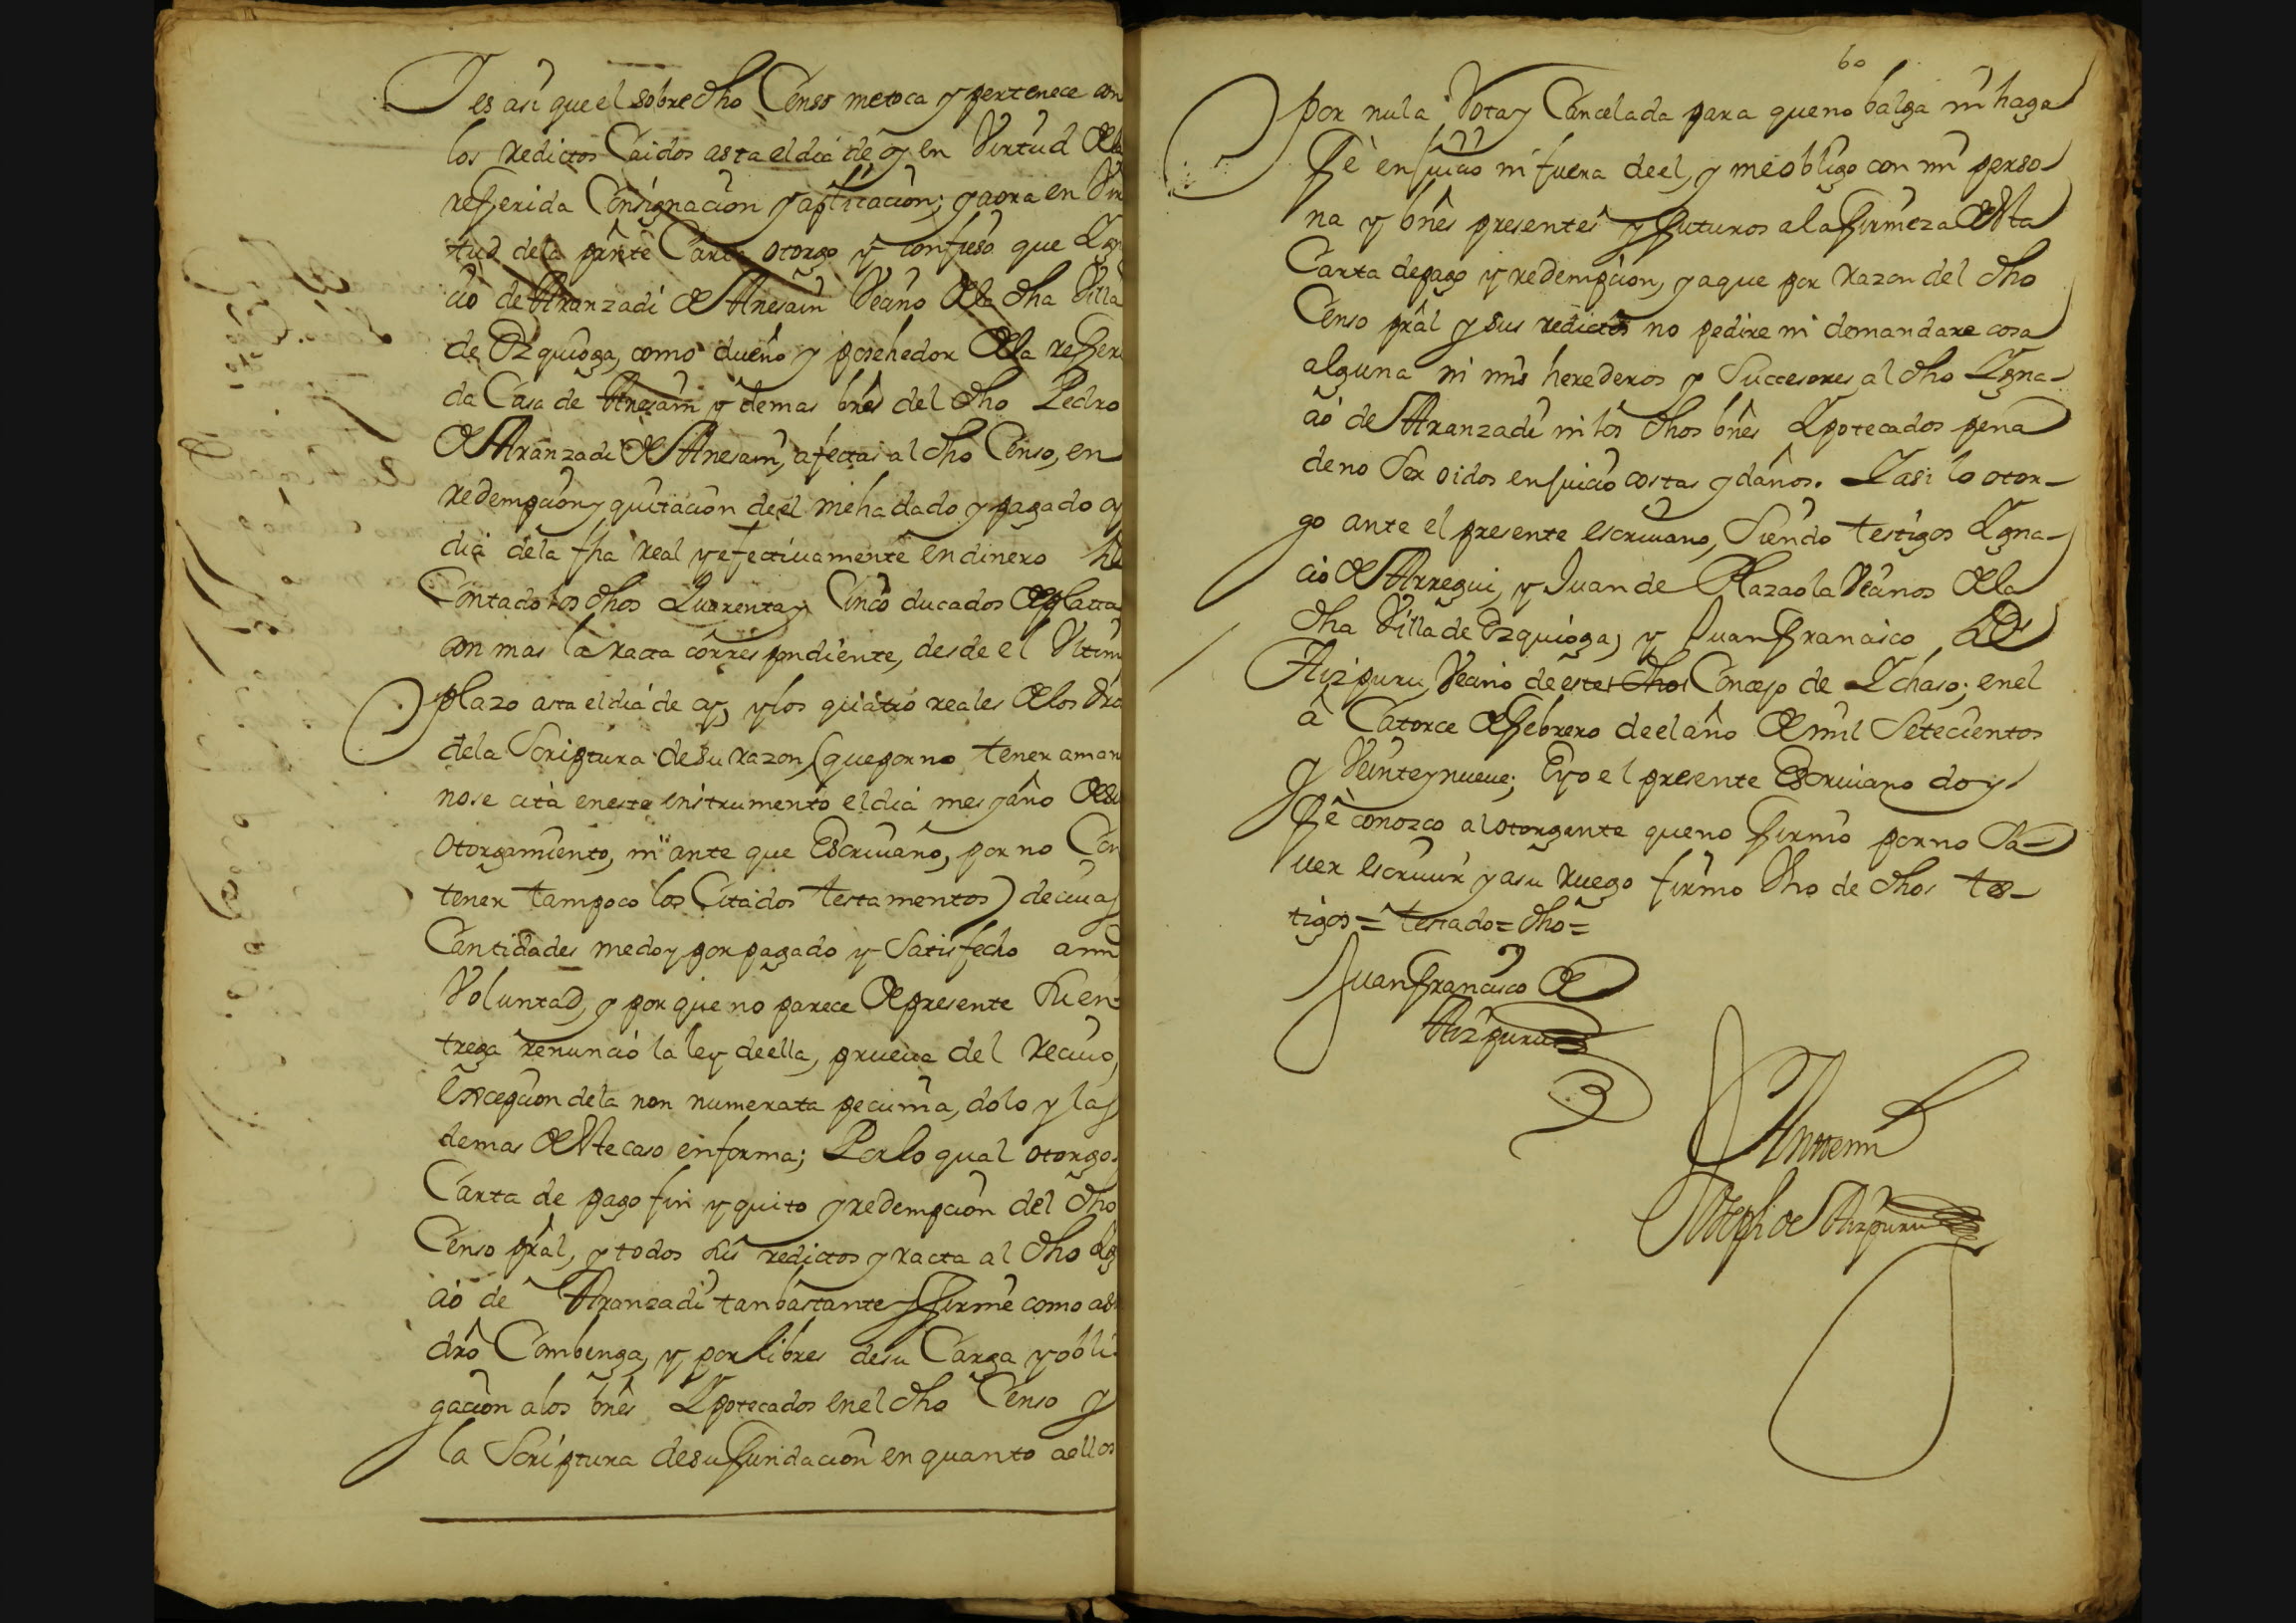 Y es asi que el sobre dho Censo me toca y pertenece con
los redictos Caidos asta el dia de oy en Virtud de la
refferida Consignacion y aplicacion; y aora en Vir
tud de la prnte Carta otorgo y confieso que Ygn
cio de Aranzadi de Anesain Vecino de la dha Villa
de Ezquioga, como dueño y posehedor de la reffer
da Casa de Anesain y demas bnes del dho Pedro
de Aranzadi de Anesain, afectas al dho Censo, en
redempcion y quitacion de el me ha dado y pagado oy
dia de la fha real y efectiuamente en dinero
Contado los dhos Quarenta y Cinco ducados de platta
con mas la racta correspondiente, desde el Vltim
plazo asta el dia de oy, y los quatro reales de los dro
de la Scriptura de su razon, (que por no tener a man
no se cita en este instrumento el dia mes y año de su
otorgamiento, ni ante que Escriuano, por no Con
tener tampoco los Citados testamentos) de cuias
Cantidades me doy por pagado y Satisfecho a mi
Voluntad, y por que no parece de presente su en-
trega renuncio la ley de ella, prueua del recuo,
Excepcion de la non numerata pecunia, dolo y las
demas de este caso en forma; Por lo qual otorgo
Carta de pago fin y quito y redempcion del dho
Censo pral, y todos sus redictos y racta al dho Yg
cio de Aranzadi tan bastante y ffirme como a su
dro Combenga, y por libres de su Carga y obli-
gacion a los bnes Ypotecados en el dho Censo y
la Scriptura de su fundacion en quanto a ellos
60
por nula Rota y Cancelada para que no balga ni haga
Fè en juicio ni fuera de el, y me obligo con mi perso-
na y bnes presentes y futuros a la firmeza de esta
Carta de pago y redempcion, y a que por razon del dho
Censo pral y sus redictos no pedire ni demandare cosa
alguna ni mis herederos y Succesores al dho Ygna-
cio de Aranzadi ni los dhos bnes Ypotecados pena
de no ser oidos en juicio costas y daños. Y asi lo otor-
go ante el presente escriuano, Siendo testigos Ygna-
cio de Arregui, y Juan de Plazaola Vecinos de la
dha Villa de Ezquioga, y Juan Francisco de
Aizpuru, Vecino de este dho Concejo de Ychaso; en el
â Catorce de Febrero de el año de mil Setecientos
y Veinte y nueue; E yo el presente Escriuano doy
Fè conozco al otorgante que no firmo por no Sa-
uer escriuir y a su ruego firmo Vno de dhos tes-
tigos = testado = dho =
Juan Francisco de
Aizpuru
Ante mi
Joseph de Aizpuru